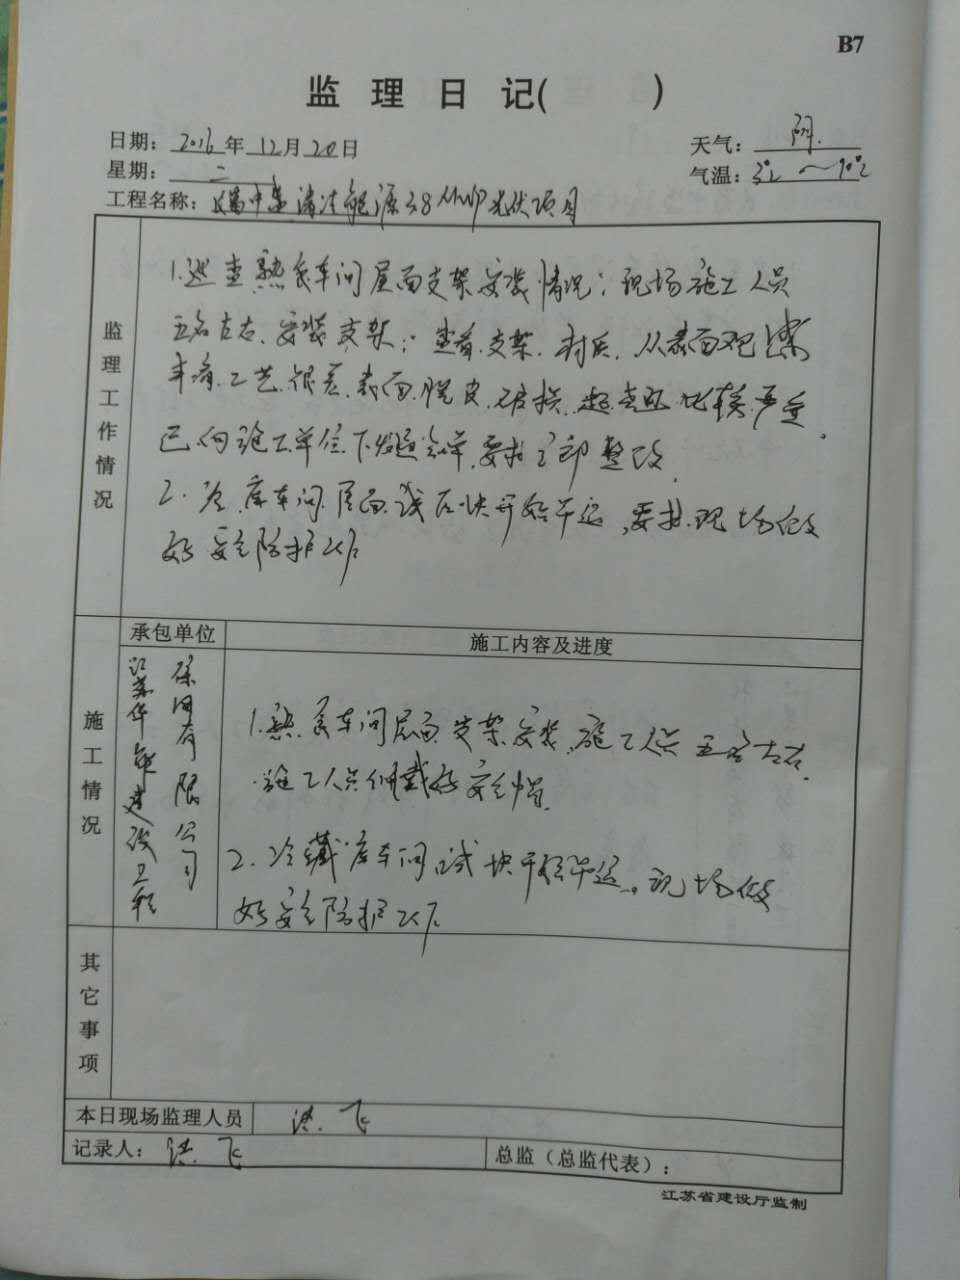 B7
监理日记( )
日期: 2016年12月20日
天气: 阴.
星期: 二
气温: 3℃~10℃
工程名称: 中 清洁能源38MWP光伏项目
监理工作情况
1.巡查熟食车间屋面支架安装情况; 现场施工人员
五名左右、安装支架; 查看支架、材质、从表面观察
工艺很差、表面脱皮、破损、起 比较严重,
已向施工单位下发通知单,要求立即整改
2.冷库车间屋面 块开始 运,要求现场做
好安全防护工作
承包单位
施工内容及进度
施工情况
江苏华能建设工程
有限公司
1.熟食车间屋面支架安装,施工人员五名左右,
施工人员佩戴好安全帽.
2.冷藏库车间 试块开始 运,现场做
好安全防护工作
其它事项
本日现场监理人员 洪飞
记录人: 洪飞
总监(总监代表):
江苏省建设厅监制